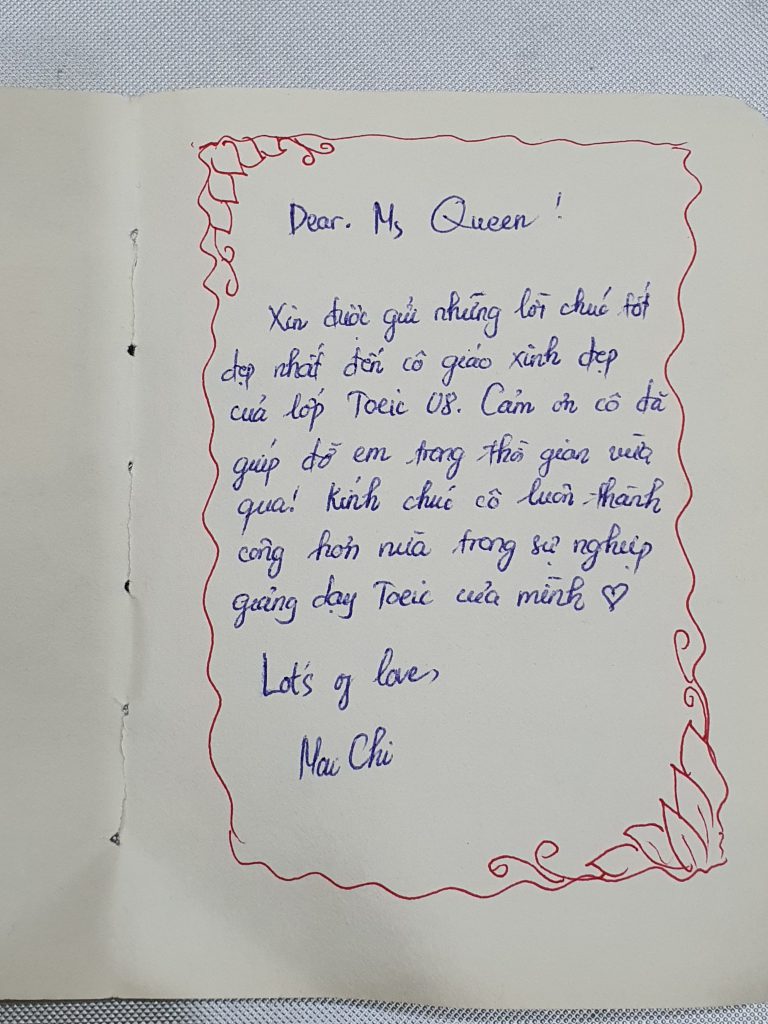 Dear. Ms Queen!
Xin được gửi những lời chúc tốt
đẹp nhất đến cô giáo xinh đẹp
của lớp Toeic U8. Cảm ơn cô đã
giúp đỡ em trong thời gian vừa
qua! Kính chúc cô luôn thành
công hơn nữa trong sự nghiệp
giảng dạy Toeic của mình ♡
Lot's of love,
Mai Chi